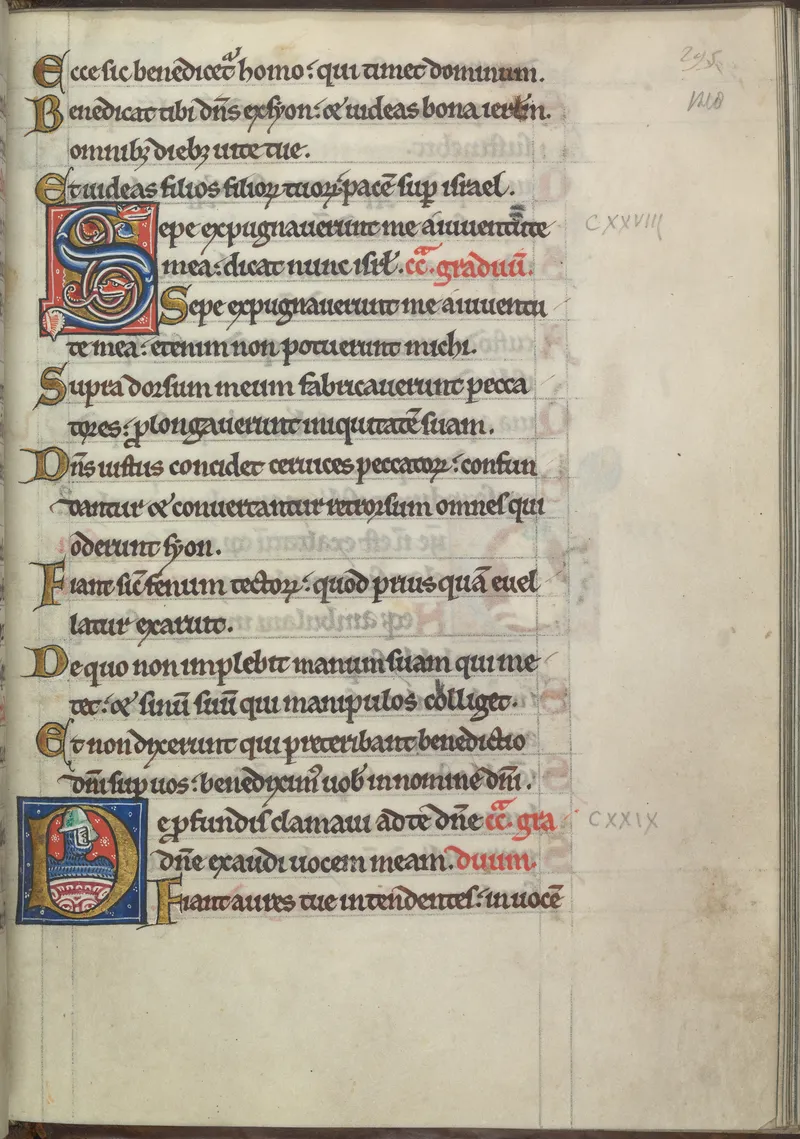 Ecce sic benedicet᷑ homo: qui timet dominum.
295
Benedicat tibi dñs ex syon: ⁊ uideas bona ierl̃m.
omnibꝫ diebꝫ uite tue.
Et uideas filios filioꝝ tuoꝝ: pacē sup̱ israel.
Sepe expugnauerunt me a iuuentute
CXXVIII
mea: dicat nunc isrl̃. cc̄. graduū.
Sepe expugnauerunt me a iuuentu
te mea: etenim non potuerunt michi.
Supra dorsum meum fabricauerunt pecca
tores: ꝓlongauerunt iniquitatē suam.
Dñs iustus concidet ceruices peccatoꝝ: confun
dantur ⁊ conuertantur retrorsum omnes qui
oderunt syon.
Fiant sic̄ fenum tectoꝝ: quod prius quā euel
latur exaruit.
De quo non impleuit manum suam qui me
tet: ⁊ sinū suū qui manipulos colliget.
Et non dixerunt qui preteribant benedictio
dñi sup̱ uos: benediximꝰ uob̄ in nomine dñi.
De ꝓfundis clamaui ad te dñe cc̄. gra
CXXIX
dñe exaudi uocem meam. duum.
Fiant aures tue intendentes: in uocē